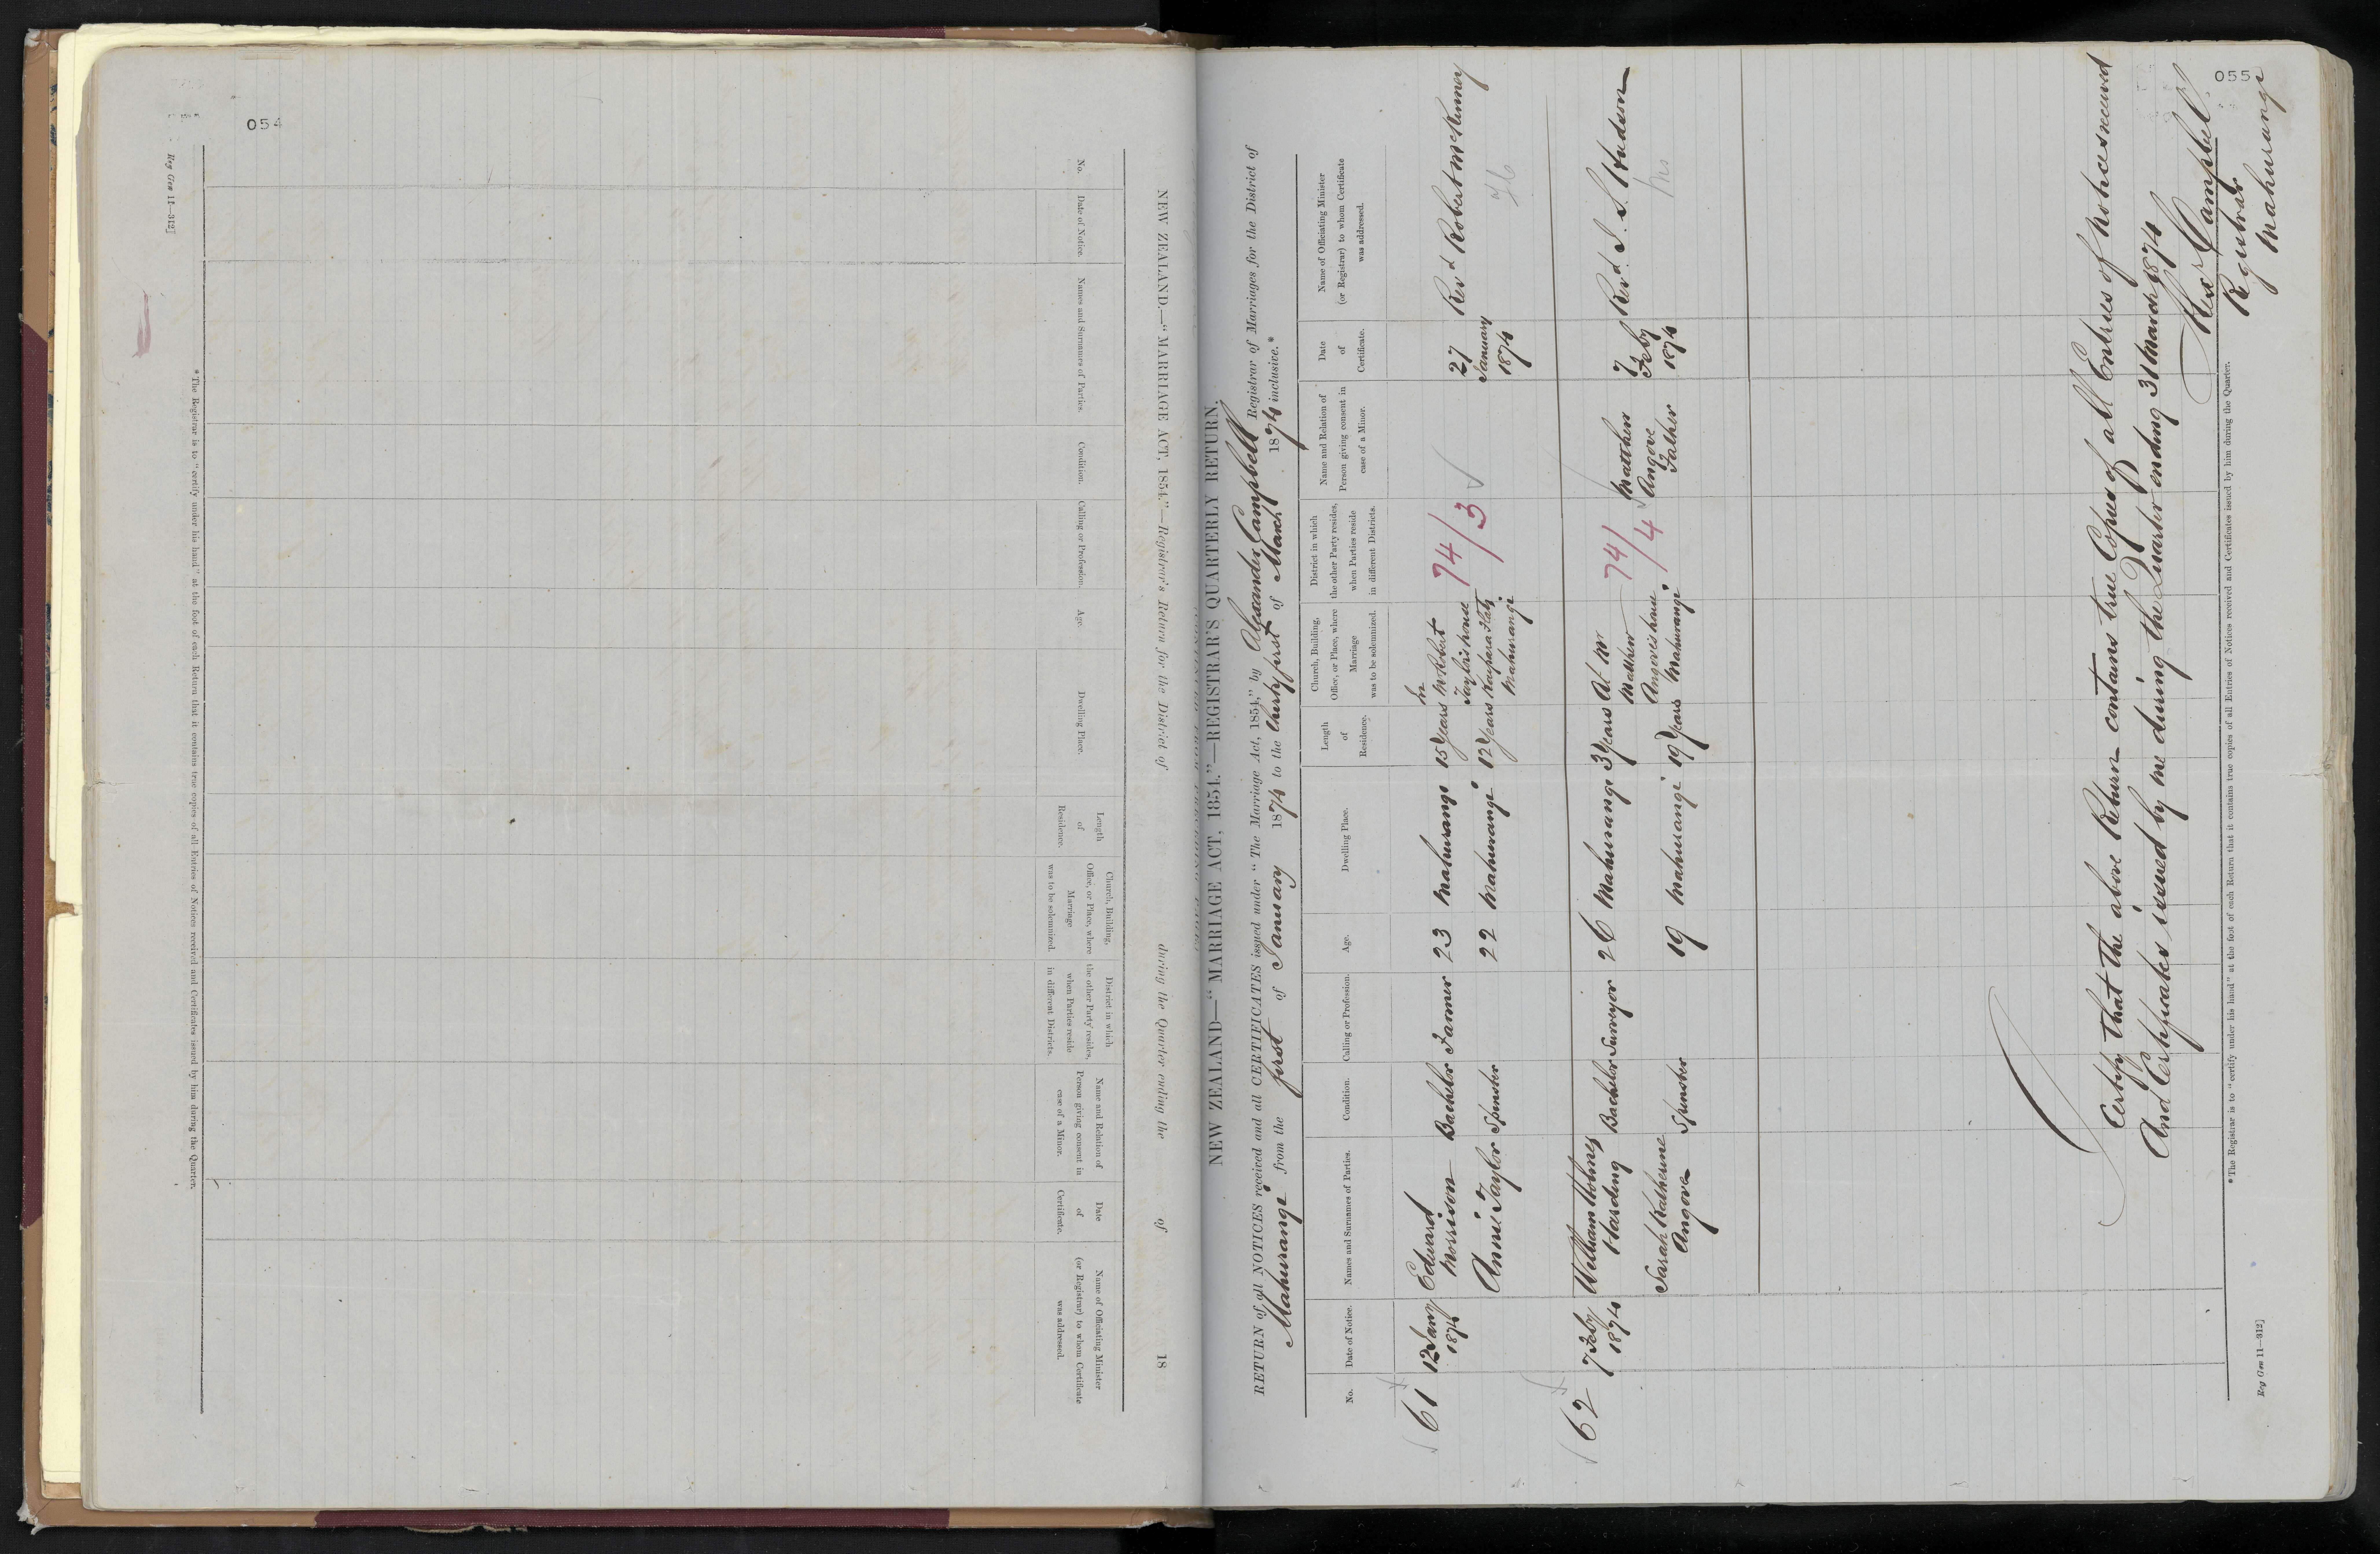 054
NEW ZEALAND.—"MARRIAGE ACT, 1854."—Registrar's Return for the District of during the Quarter ending the of 18
No.
Date of Notice.
Names and Surnames of Parties.
Condition.
Calling or Profession.
Age.
Dwelling Place.
Length
of
Residence.
Church, Building,
Office, or Place, where
Marriage
was to be solemnized.
District in which
the other Party resides,
when Parties reside
in different Districts.
Name and Relation of
Person giving consent in
case of a Minor.
Date
of
Certificate.
Name of Officiating Minister
(or Registrar) to whom Certificate
was addressed.
* The Registrar is to "certify under his hand" at the foot of each Return that it contains true copies of all Entries of Notices received and Certificates issued by him during the Quarter.
Reg Gen 11—312]
055
NEW ZEALAND—"MARRIAGE ACT, 1854."—REGISTRAR'S QUARTERLY RETURN.
RETURN of all NOTICES received and all CERTIFICATES issued under "The Marriage Act, 1854," by Alexander Campbell Registrar of Marriages for the District of
Mahurangi from the first of January 1874 to the thirty first of March 1874 inclusive.*
No.
Date of Notice.
Names and Surnames of Parties.
Condition.
Calling or Profession.
Age.
Dwelling Place.
Length
of
Residence.
Church, Building,
Office, or Place, where
Marriage
was to be solemnized.
District in which
the other Party resides,
when Parties reside
in different Districts.
Name and Relation of
Person giving consent in
case of a Minor.
Date
of
Certificate.
Name of Officiating Minister
(or Registrar) to whom Certificate
was addressed.
61
12 Jany
1874
Edward
Morrison
Bachelor
Farmer
23
Mahurangi
15 Years
In
Mr Robert
Taylor's house
Kaipara Flats
Mahurangi
74/3
27
January
1874
Revd Robert McKinney
Annie Taylor
Spinster
22
Mahurangi
12 Years
62
7 Feby
1874
William Holmes
Harding
Bachelor
Surveyor
26
Mahurangi
3 Years
At Mr
Matthew
Angove's house
Mahurangi
74/4
Matthew
Angove
Father
7
Feby
1874
Revd. S. S. Hudson
Sarah Katherine
Angove
Spinster
19
Mahurangi
19 Years
I Certify that the above Return contains true Copies of all Entries of Notices received
And Certificates issued by me during the Quarter ending 31 March 1874
Alexr Campbell
Registrar
Mahurangi
* The Registrar is to "certify under his hand" at the foot of each Return that it contains true copies of all Entries of Notices received and Certificates issued by him during the Quarter.
Reg Gen 11—312]